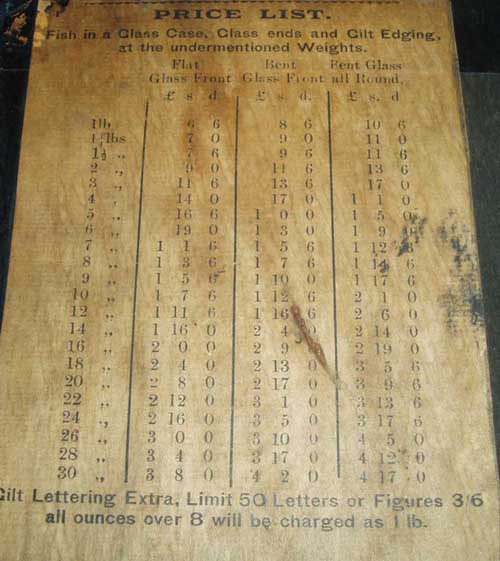 PRICE LIST.
Fish in a Glass Case, Glass ends and Gilt Edging,
at the undermentioned Weights.
Flat Bent Bent Glass
Glass Front Glass Front all Round.
£ s d £ s. d. £ s. d
1lb. 6 6 8 6 10 6
lbs 7 0 9 0 11 0
1½ ,, 7 6 9 6 11 6
2 ,, 9 0 11 6 13 6
3 ,, 11 6 13 6 17 0
4 ,, 14 0 17 0 1 1 0
5 ,, 16 6 1 0 0 1 5 0
6 ,, 19 0 1 3 0 1 9 0
7 ,, 1 1 6 1 5 6 1 12 6
8 ,, 1 3 6 1 7 6 1 14 6
9 ,, 1 5 6 1 10 0 1 17 6
10 ,, 1 7 6 1 12 6 2 1 0
12 ,, 1 11 6 1 16 6 2 6 0
14 ,, 1 16 0 2 4 0 2 14 0
16 ,, 2 0 0 2 9 2 19 0
18 ,, 2 4 0 2 13 0 3 5 6
20 ,, 2 8 0 2 17 0 3 9 6
22 ,, 2 12 0 3 1 0 3 13 6
24 ,, 2 16 0 3 5 0 3 17 6
26 ,, 3 0 0 3 10 0 4 5 0
28 ,, 3 4 0 3 17 0 4 12 0
30 ,, 3 8 0 4 2 0 4 17 0
Gilt Lettering Extra, Limit 50 Letters or Figures 3/6
all ounces over 8 will be charged as 1 lb.